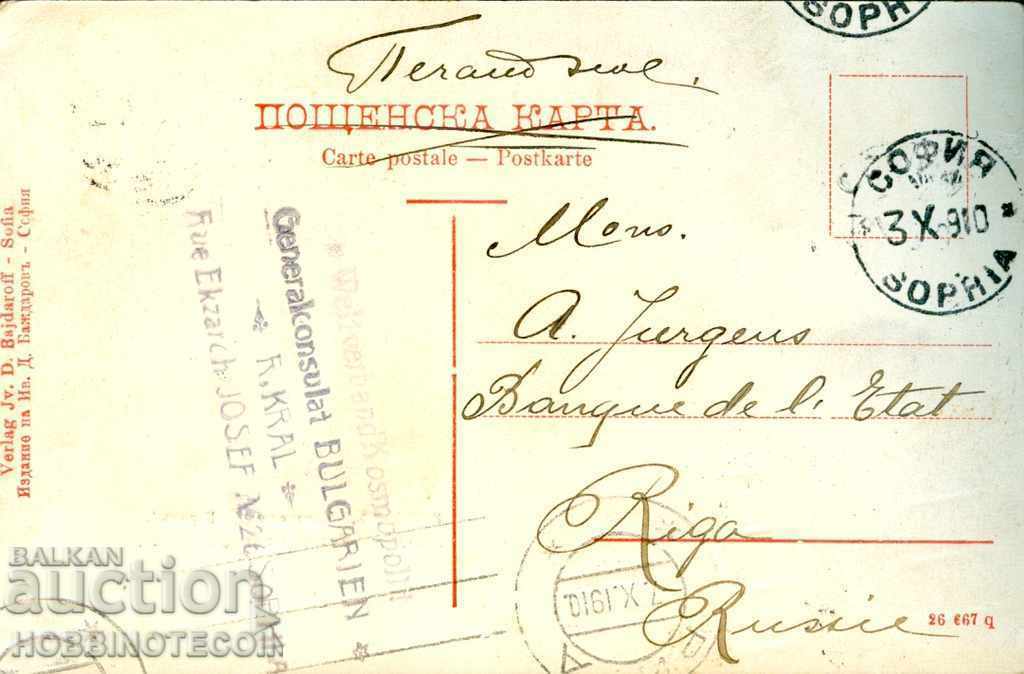 SOPHI
Печатное.
ПОЩЕНСКА КАРТА.
Carte postale — Postkarte
СОФИЯ
3 X 910
SOPHIA
Mons.
A. Jurgens
Banque de l'Etat
Riga
Russie
Verlag Jv. D. Bajdaroff - Sofia
Издание на Ив. Д. Баждаровъ - София
* Weltverband Kosmopolit
Generalkonsulat BULGARIEN *
R. KRAL
Rue Ekzarch JOSEF №26 SOFIA
7. X. 1910
26 667 q
BALKAN
auction
HOBBINOTECOIN